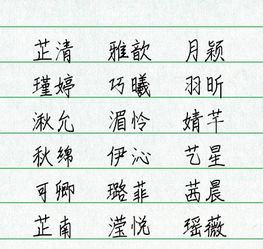 芷清 雅歆 月颖
瑾婷 巧曦 羽昕
湫允 湄怜 婧芊
秋绵 伊沁 艺星
可卿 璐菲 茜晨
芷南 滢悦 瑶薇